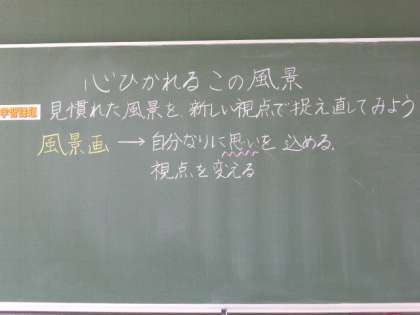 心ひかれるこの風景
学習課題 見慣れた風景を、新しい視点で捉え直してみよう
風景画 → 自分なりに思いを込める。
視点を変える